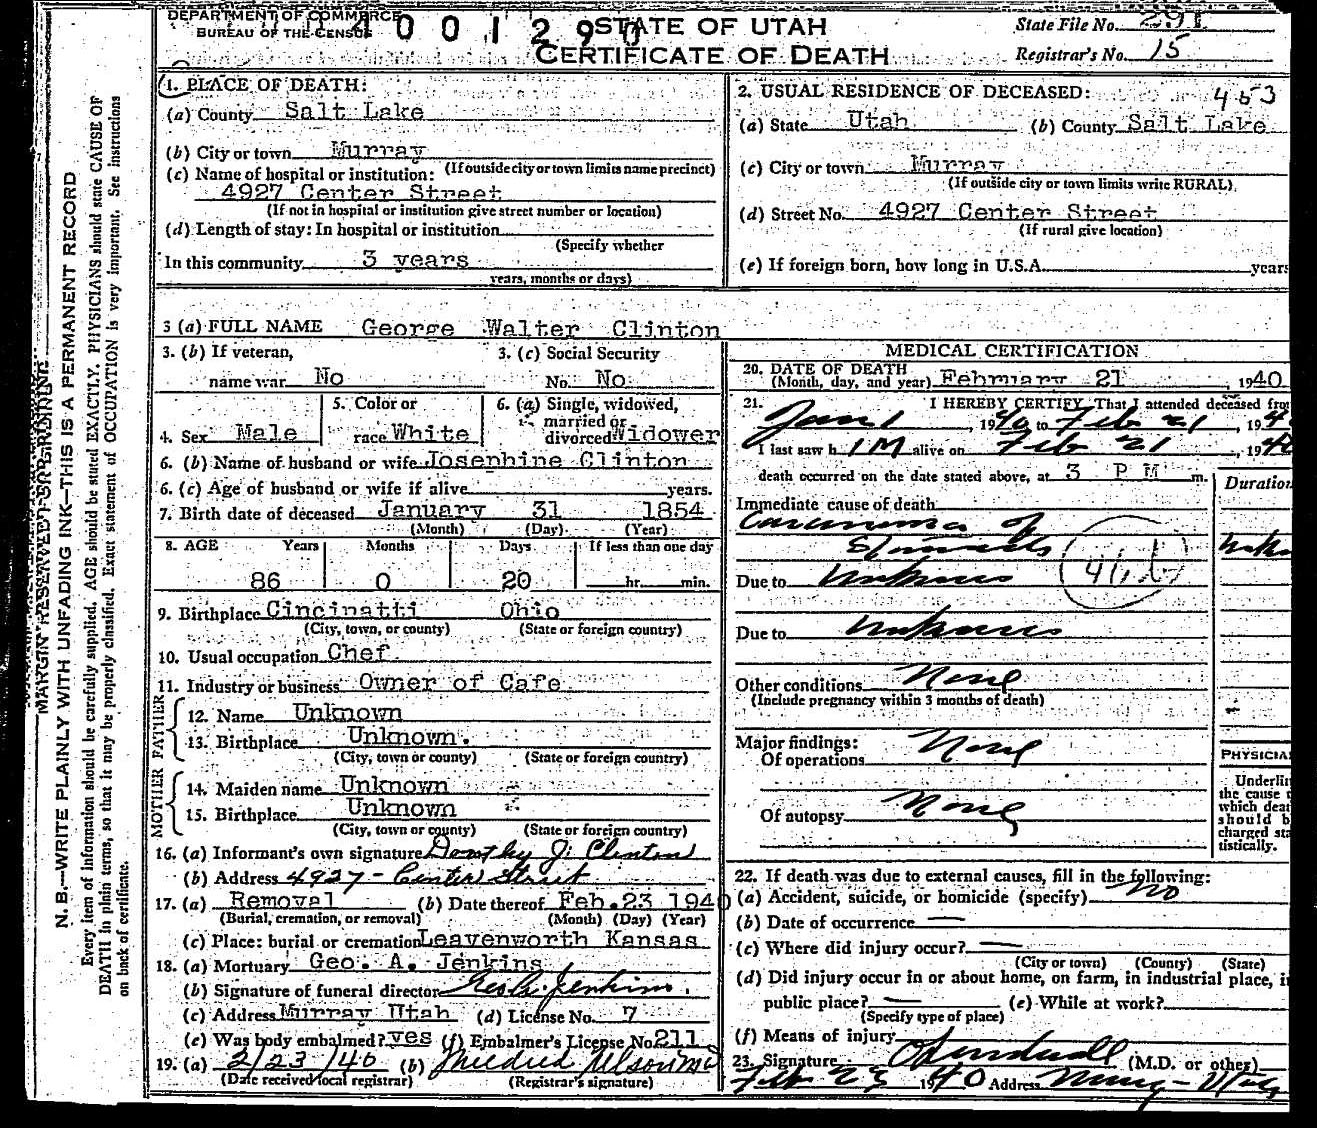 DEPARTMENT OF COMMERCE
BUREAU OF THE CENSUS
4 0 0 1 2 9 0
STATE OF UTAH
CERTIFICATE OF DEATH
State File No. 291
Registrar's No. 15
1. PLACE OF DEATH:
(a) County Salt Lake
(b) City or town Murray
(If outside city or town limits name precinct)
(c) Name of hospital or institution:
4927 Center Street
(If not in hospital or institution give street number or location)
(d) Length of stay: In hospital or institution
(Specify whether
In this community 3 years
years, months or days)
2. USUAL RESIDENCE OF DECEASED: 453
(a) State Utah (b) County Salt Lake
(c) City or town Murray
(If outside city or town limits write RURAL)
(d) Street No. 4927 Center Street
(If rural give location)
(e) If foreign born, how long in U.S.A. years
3 (a) FULL NAME George Walter Clinton
3. (b) If veteran,
name war No
3. (c) Social Security
No. No
4. Sex Male
5. Color or
race White
6. (a) Single, widowed,
married or
divorced Widower
6. (b) Name of husband or wife Josephine Clinton
6. (c) Age of husband or wife if alive years.
7. Birth date of deceased January 31 1854
(Month) (Day) (Year)
8. AGE Years Months Days If less than one day
86 0 20 hr. min.
9. Birthplace Cincinatti Ohio
(City, town, or county) (State or foreign country)
10. Usual occupation Chef
11. Industry or business Owner of Cafe
FATHER
12. Name Unknown
13. Birthplace Unknown.
(City, town or county) (State or foreign country)
MOTHER
14. Maiden name Unknown
15. Birthplace Unknown
(City, town or county) (State or foreign country)
16. (a) Informant's own signature Dorothy J. Clinton
(b) Address 4927 - Center Street
17. (a) Removal (b) Date thereof Feb. 23 1940
(Burial, cremation, or removal) (Month) (Day) (Year)
(c) Place: burial or cremation Leavenworth Kansas
18. (a) Mortuary Geo. A. Jenkins
(b) Signature of funeral director Geo A. Jenkins.
(c) Address Murray Utah (d) License No. 7
(e) Was body embalmed? yes (f) Embalmer's License No. 211
19. (a) 2/23/40 (b) Mildred Nelson
(Date received local registrar) (Registrar's signature)
MEDICAL CERTIFICATION
20. DATE OF DEATH
(Month, day, and year) February 21, 1940
21. I HEREBY CERTIFY That I attended deceased from
Jan 1, 1940 to Feb 21, 194
I last saw h IM alive on Feb 21, 1940
death occurred on the date stated above, at 3 P M m.
Duration
Immediate cause of death
Carcinoma of
Stomach
Due to Unknown
Due to Unknown
Other conditions None
(Include pregnancy within 3 months of death)
Major findings:
Of operations None
Of autopsy None
PHYSICIA
Underlin
the cause
which deat
should b
charged sta
tistically.
22. If death was due to external causes, fill in the following:
(a) Accident, suicide, or homicide (specify) No
(b) Date of occurrence —
(c) Where did injury occur? —
(City or town) (County) (State)
(d) Did injury occur in or about home, on farm, in industrial place, i
public place? — (e) While at work?
(Specify type of place)
(f) Means of injury
23. Signature (M.D. or other)
Feb 23 1940 Address Murray - Utah
MARGIN RESERVED FOR BINDING
N. B.—WRITE PLAINLY WITH UNFADING INK—THIS IS A PERMANENT RECORD
Every item of information should be carefully supplied. AGE should be stated EXACTLY. PHYSICIANS should state CAUSE OF
DEATH in plain terms, so that it may be properly classified. Exact statement of OCCUPATION is very important. See instructions
on back of certificate.